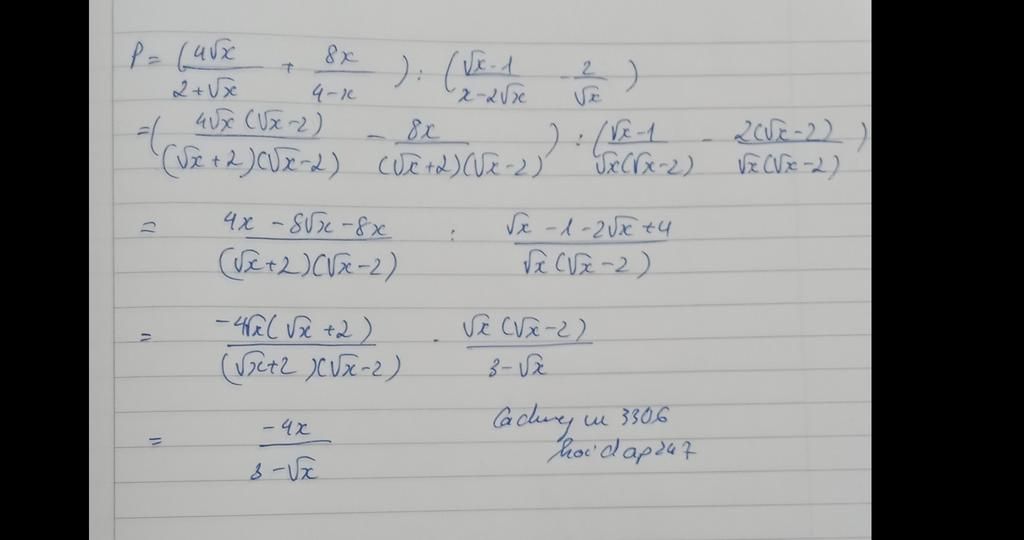 P = (4√x / 2+√x + 8x / 4-x) : (√x-1 / x-2√x - 2 / √x)
= (4√x(√x-2) / (√x+2)(√x-2) - 8x / (√x+2)(√x-2)) : (√x-1 / √x(√x-2) - 2(√x-2) / √x(√x-2))
= 4x-8√x-8x / (√x+2)(√x-2) : √x-1-2√x+4 / √x(√x-2)
= -4√x(√x+2) / (√x+2)(√x-2) . √x(√x-2) / 3-√x
= -4x / 3-√x
3306
hoidap247